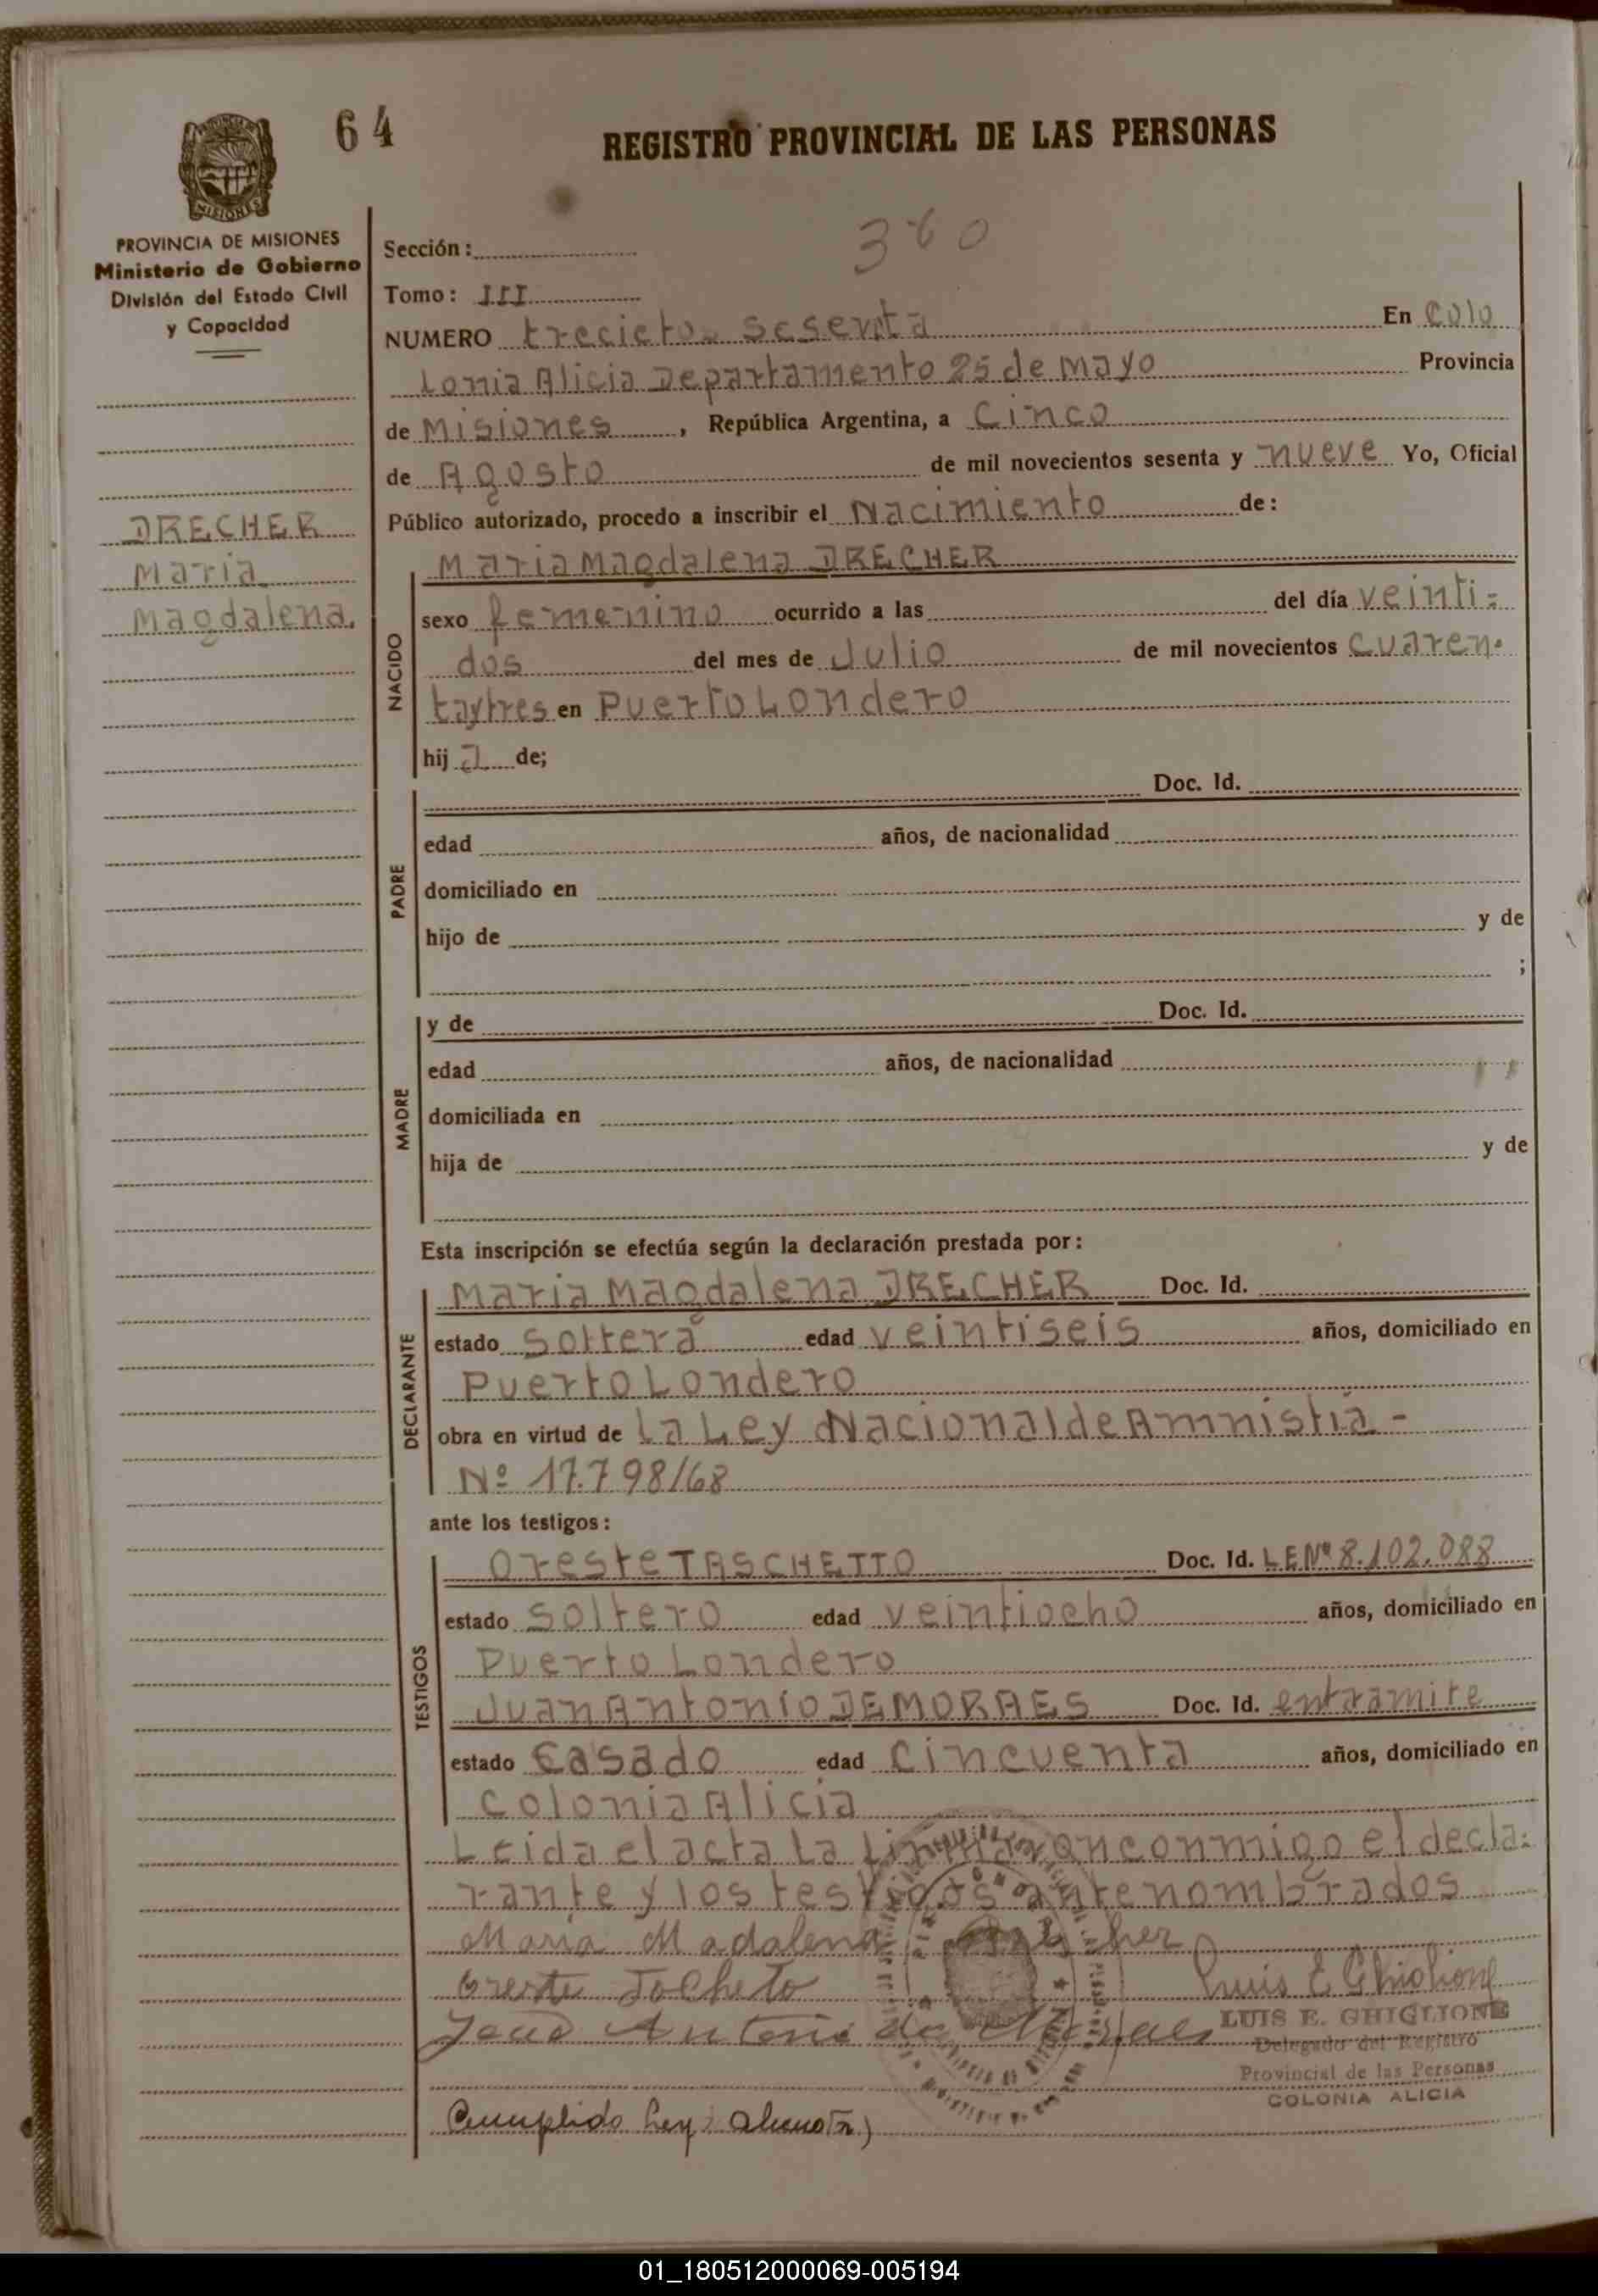 64
REGISTRO PROVINCIAL DE LAS PERSONAS
PROVINCIA DE MISIONES
Ministerio de Gobierno
División del Estado Civil
y Capacidad
DRECHER
Maria
Magdalena.
360
Sección:
Tomo: III
NUMERO trecieto sesenta En Colo
Lonia Alicia Departamento 25 de Mayo Provincia
de Misiones, República Argentina, a Cinco
de Agosto de mil novecientos sesenta y nueve Yo, Oficial
Público autorizado, procedo a inscribir el Nacimiento de:
NACIDO
Maria Magdalena DRECHER
sexo femenino ocurrido a las del día veinti-
dos del mes de Julio de mil novecientos Cuaren-
taytres en Puerto Londero
hij a de;
PADRE
Doc. Id.
edad años, de nacionalidad
domiciliado en
hijo de y de
;
MADRE
y de Doc. Id.
edad años, de nacionalidad
domiciliada en
hija de y de
Esta inscripción se efectúa según la declaración prestada por:
DECLARANTE
Maria Magdalena DRECHER Doc. Id.
estado Soltera edad veintiseis años, domiciliado en
Puerto Londero
obra en virtud de La Ley Nacional de Amnistia -
Nº 17.798/68
ante los testigos:
TESTIGOS
Oreste TASCHETTO Doc. Id. LE Nº 8.102.088
estado Soltero edad veintiocho años, domiciliado en
Puerto Londero
Juan Antonio DEMORAES Doc. Id. entramite
estado Casado edad Cincuenta años, domiciliado en
Colonia Alicia
Leida el acta la firmaron conmigo el decla-
rante y los testigos antenombrados
Maria Madalena Drecher
Oreste Tocheto Luis E Ghiglione
Antonio de Moraes
LUIS E. GHIGLIONE
Delegado del Registro
Provincial de las Personas
COLONIA ALICIA
Cumplido Ley
01_180512000069-005194